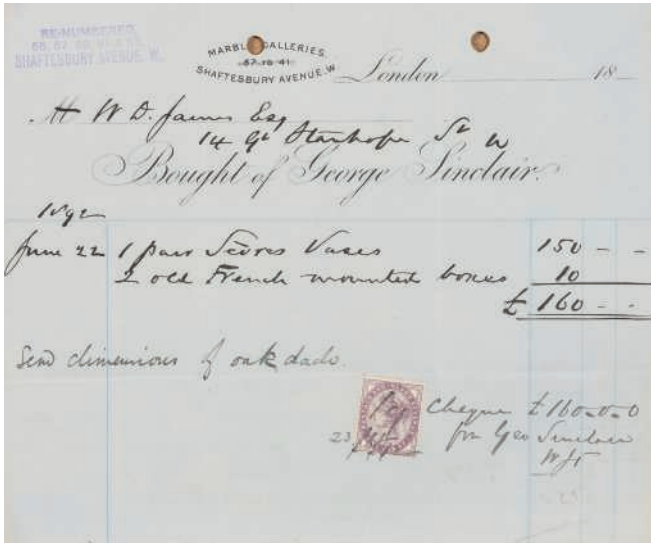 RE-NUMBERED
SHAFTESBURY AVENUE, W.
MARBLE GALLERIES.
SHAFTESBURY AVENUE, W.
London 18
W D. James Esq
14 Gt Stanhope St W
Bought of George Sinclair.
1892
June 22 1 pair Sèvres Vases 150 - -
2 old French mounted boxes 10
£ 160 - -
Send dimensions of oak dado.
Cheque £160-0-0
for Geo Sinclair
23